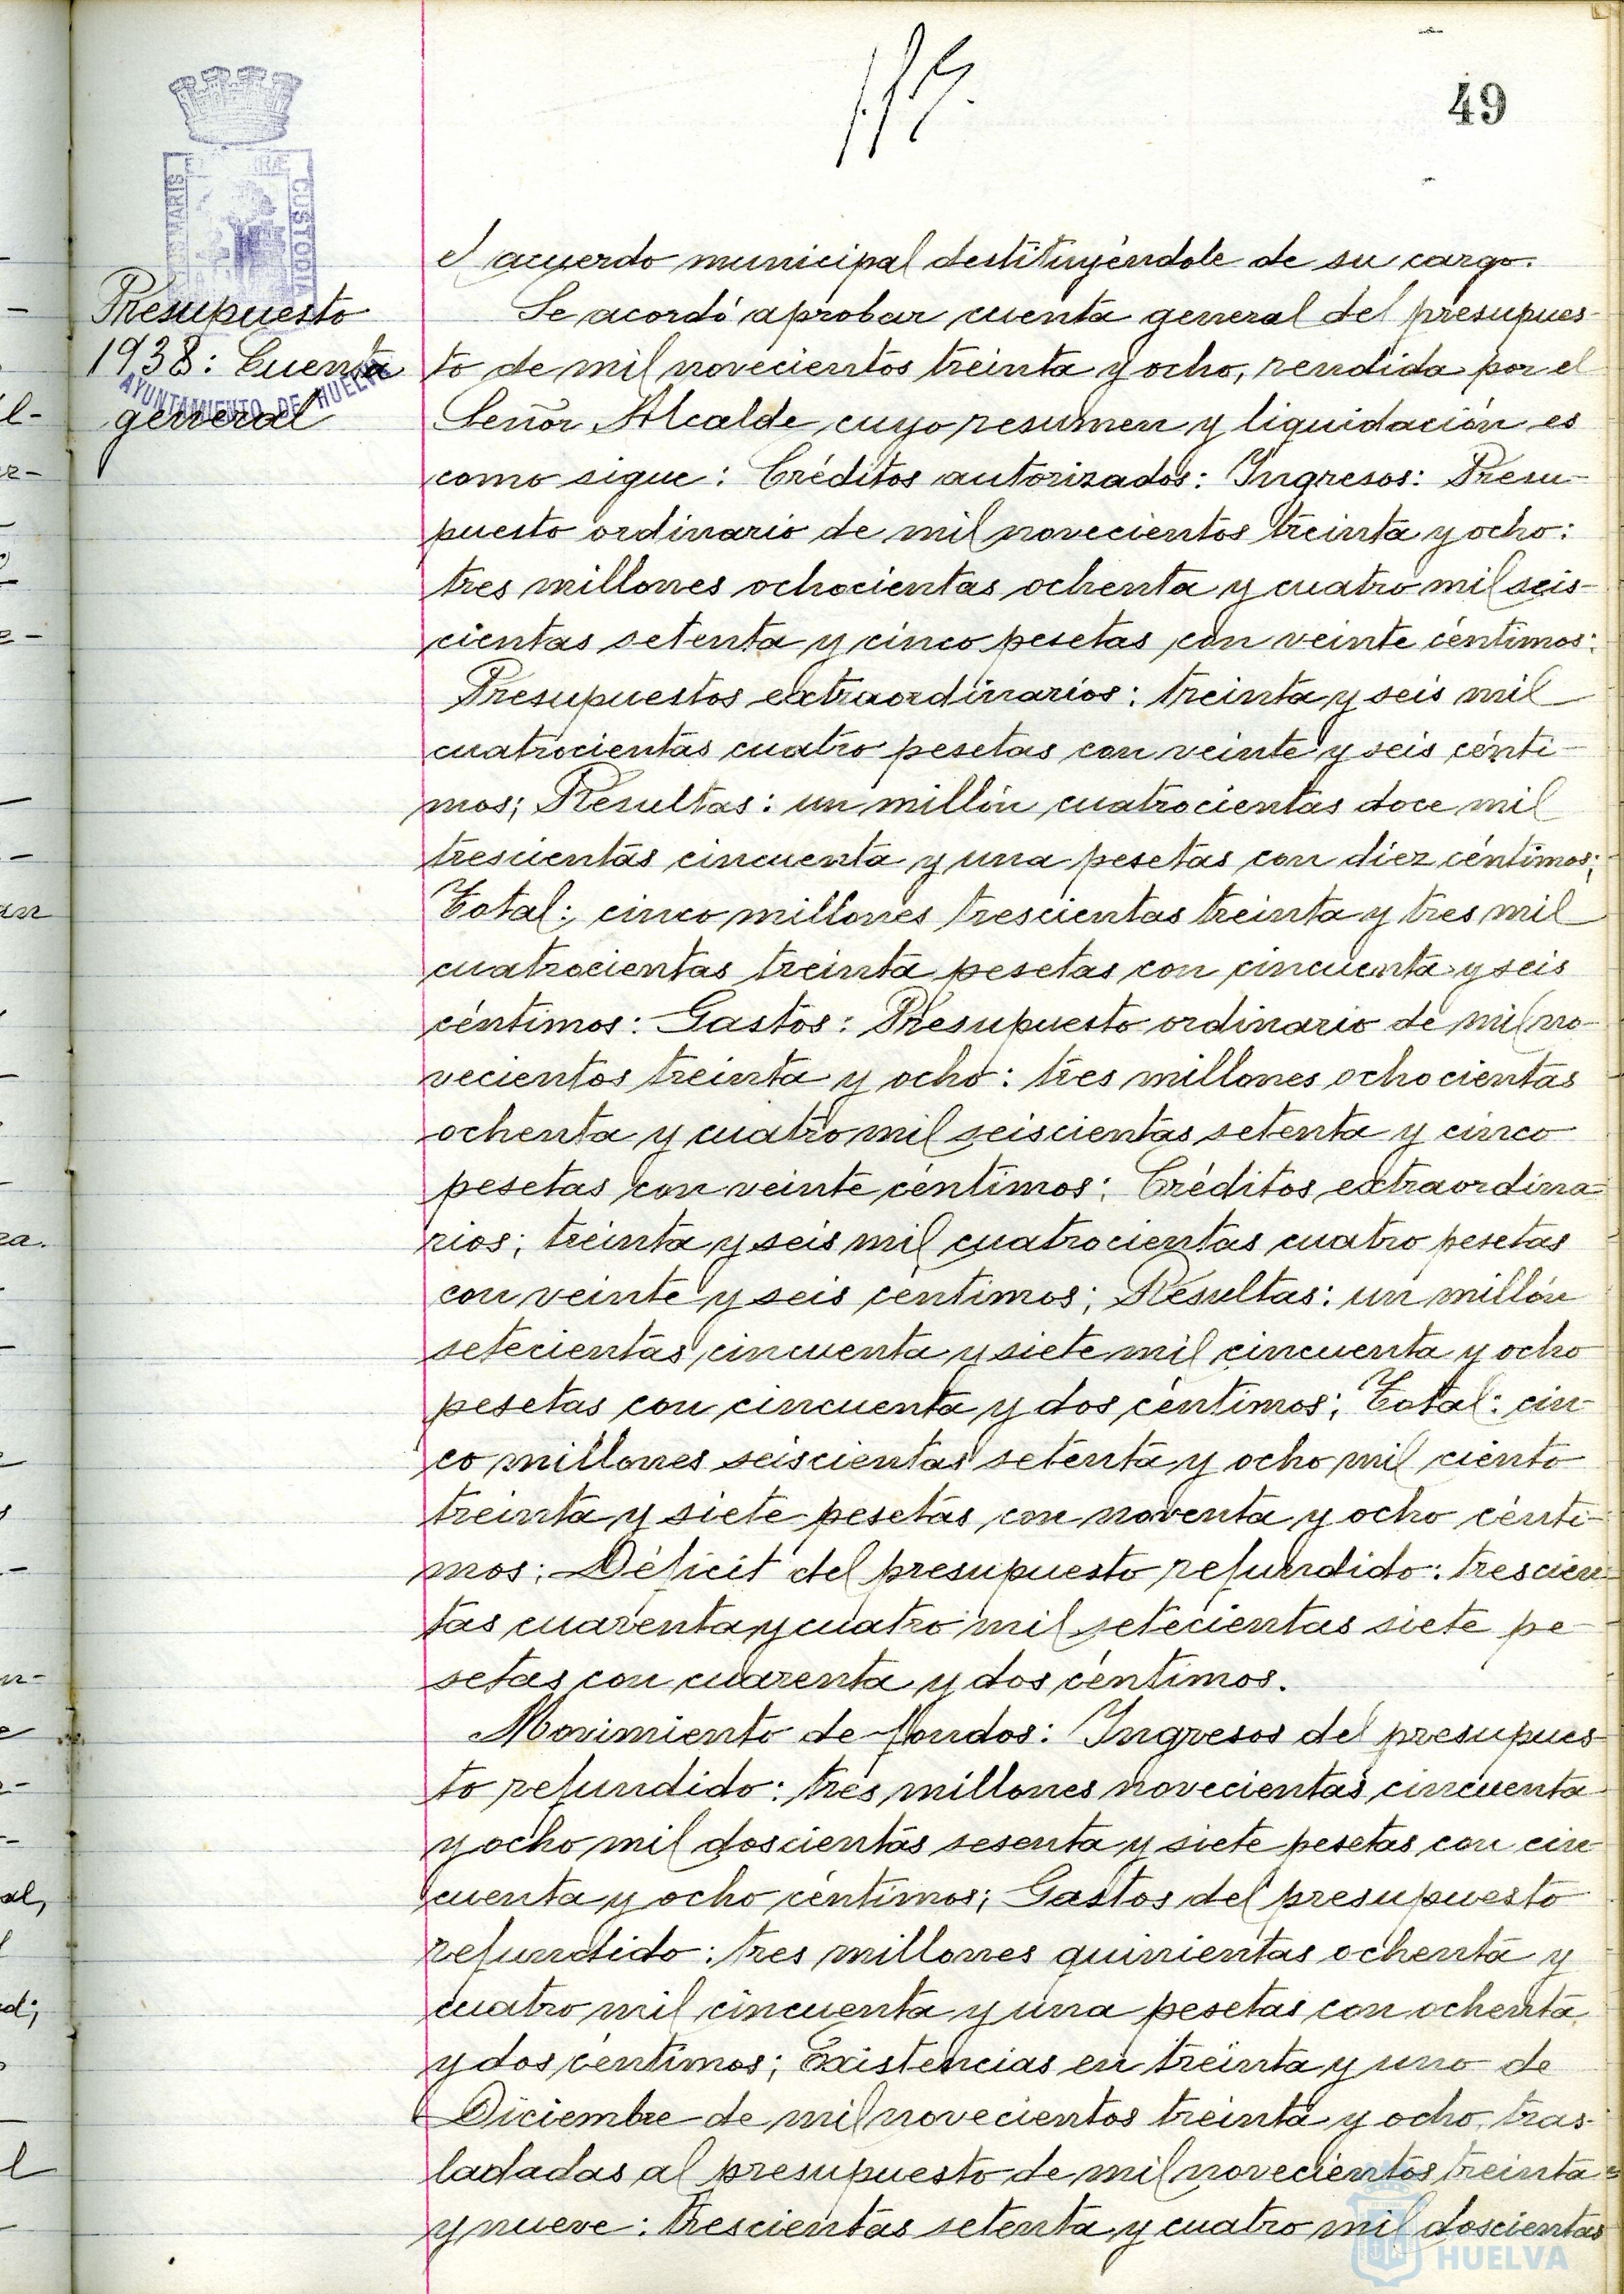 49
MARIS
CUSTODIA
Presupuesto
1938: Cuenta
AYUNTAMIENTO DE HUELVA
general
el acuerdo municipal destituyéndole de su cargo.
Se acordó aprobar cuenta general del presupues-
to de mil novecientos treinta y ocho, rendida por el
Señor Alcalde, cuyo resumen y liquidación es
como sigue: Créditos autorizados: Ingresos: Presu-
puesto ordinario de mil novecientos treinta y ocho:
tres millones ochocientas ochenta y cuatro mil seis-
cientas setenta y cinco pesetas con veinte céntimos:
Presupuestos extraordinarios: treinta y seis mil
cuatrocientas cuatro pesetas con veinte y seis cénti-
mos; Resultas: un millón cuatrocientas doce mil
trescientas cincuenta y una pesetas con diez céntimos;
Total: cinco millones trescientas treinta y tres mil
cuatrocientas treinta pesetas con cincuenta y seis
céntimos: Gastos: Presupuesto ordinario de mil no-
vecientos treinta y ocho: tres millones ochocientas
ochenta y cuatro mil seiscientas setenta y cinco
pesetas con veinte céntimos; Créditos extraordina-
rios; treinta y seis mil cuatrocientas cuatro pesetas
con veinte y seis céntimos; Resultas: un millón
setecientas cincuenta y siete mil cincuenta y ocho
pesetas con cincuenta y dos céntimos; Total: cin-
co millones seiscientas setenta y ocho mil ciento
treinta y siete pesetas con noventa y ocho cénti-
mos; Déficit del presupuesto refundido: trescien-
tas cuarenta y cuatro mil setecientas siete pe-
setas con cuarenta y dos céntimos.
Movimiento de fondos: Ingresos del presupues-
to refundido: tres millones novecientas cincuenta
y ocho mil doscientas sesenta y siete pesetas con cin-
cuenta y ocho céntimos; Gastos del presupuesto
refundido: tres millones quinientas ochenta y
cuatro mil cincuenta y una pesetas con ochenta
y dos céntimos; Existencias en treinta y uno de
Diciembre de mil novecientos treinta y ocho, tras-
ladadas al presupuesto de mil novecientos treinta
y nueve: trescientas setenta y cuatro mil doscientas
HUELVA